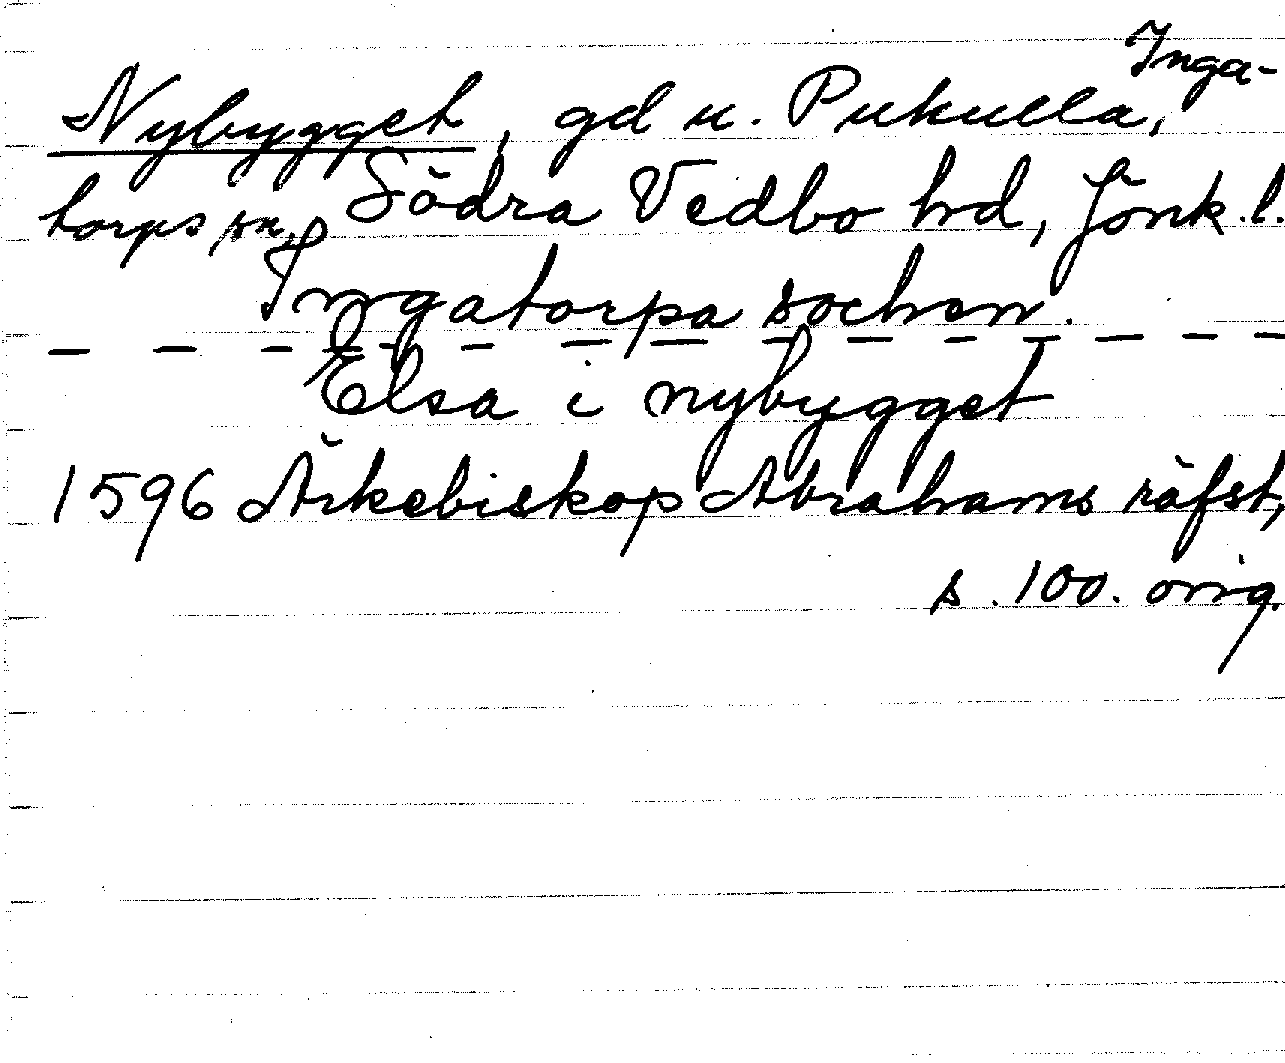 Nybygget, gd u. Pukulla, Inga-
torps sn, Södra Vedbo hd, Jönk. l.
Ingatorpa sochen.
Elsa i nybygget
1596 Ärkebiskop Abrahams räfst,
s. 100. orig.